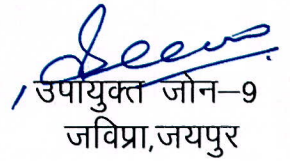 उपायुक्त जोन–9
जविप्रा,जयपुर